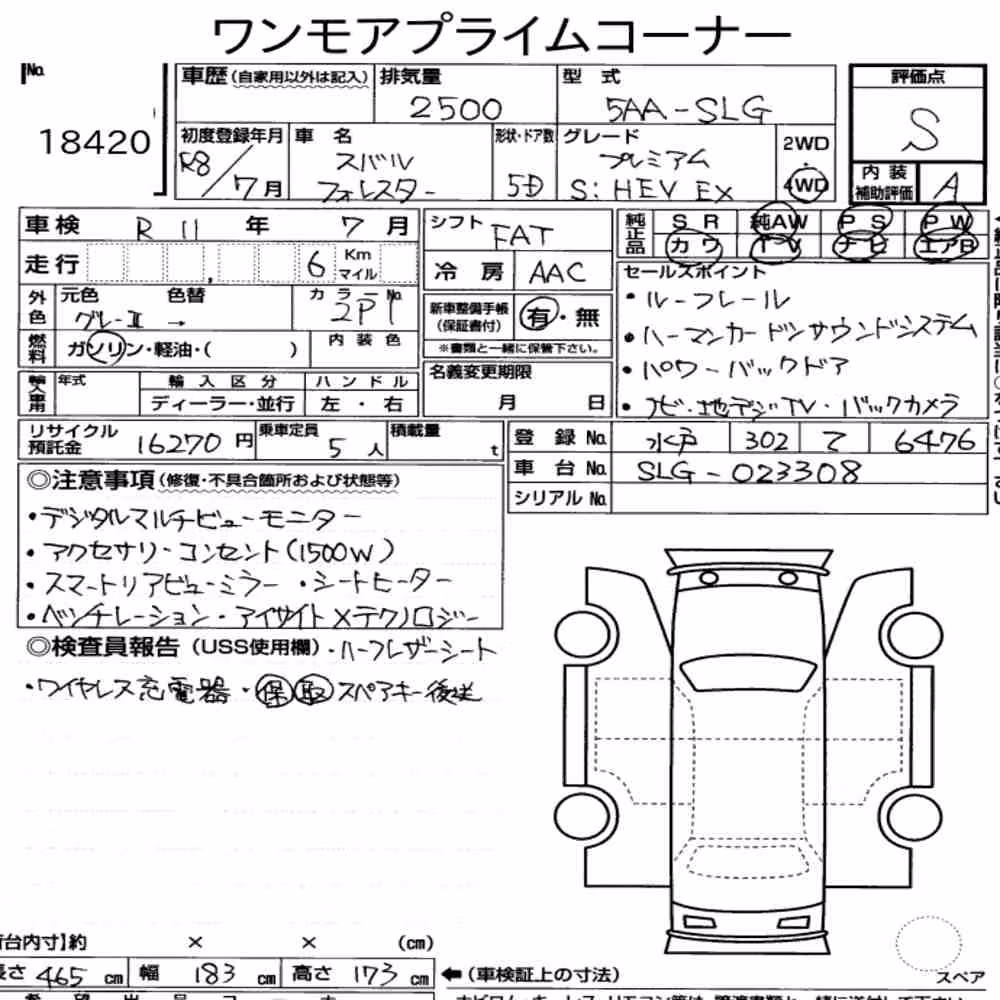 ワンモアプライムコーナー
No.
18420
車歴(自家用以外は記入) 排気量 型式 評価点
2500 5AA-SLG S
初度登録年月 車名 形状・ドア数 グレード 2WD・4WD 内装補助評価 A
R8/7月 スバル フォレスター 5D プレミアム S:HEV EX
車検 R11年7月 シフト FAT 純正品 SR 純AW PS PW
カワ TV ナビ エアB
走行 6 Km マイル 冷房 AAC セールスポイント
・ルーフレール
外色 元色 色替 カラーNo. 新車整備手帳(保証書付) 有・無
グレーII → 2P1 ・ハーマンカードンサウンドシステム
燃料 ガソリン・軽油・( ) 内装色 ※書類と一緒に保管下さい。
・パワーバックドア
輸入車用 年式 輸入区分 ハンドル 名義変更期限
ディーラー・並行 左・右 月 日 ・ナビ・地デジTV・バックカメラ
リサイクル預託金 16270円 乗車定員 5人 積載量 t 登録No. 水戸 302 て 6476
車台No. SLG-023308
シリアルNo.
◎注意事項(修復・不具合箇所および状態等)
・デジタルマルチビューモニター
・アクセサリーコンセント(1500W)
・スマートリアビューミラー ・シートヒーター
・ベンチレーション・アイサイトXテクノロジー
◎検査員報告(USS使用欄)・ハーフレザーシート
・ワイヤレス充電器・保取スペアキー後送
台内寸】約 × × (cm)
長さ 465 cm 幅 183 cm 高さ 173 cm ←(車検証上の寸法)
スペア